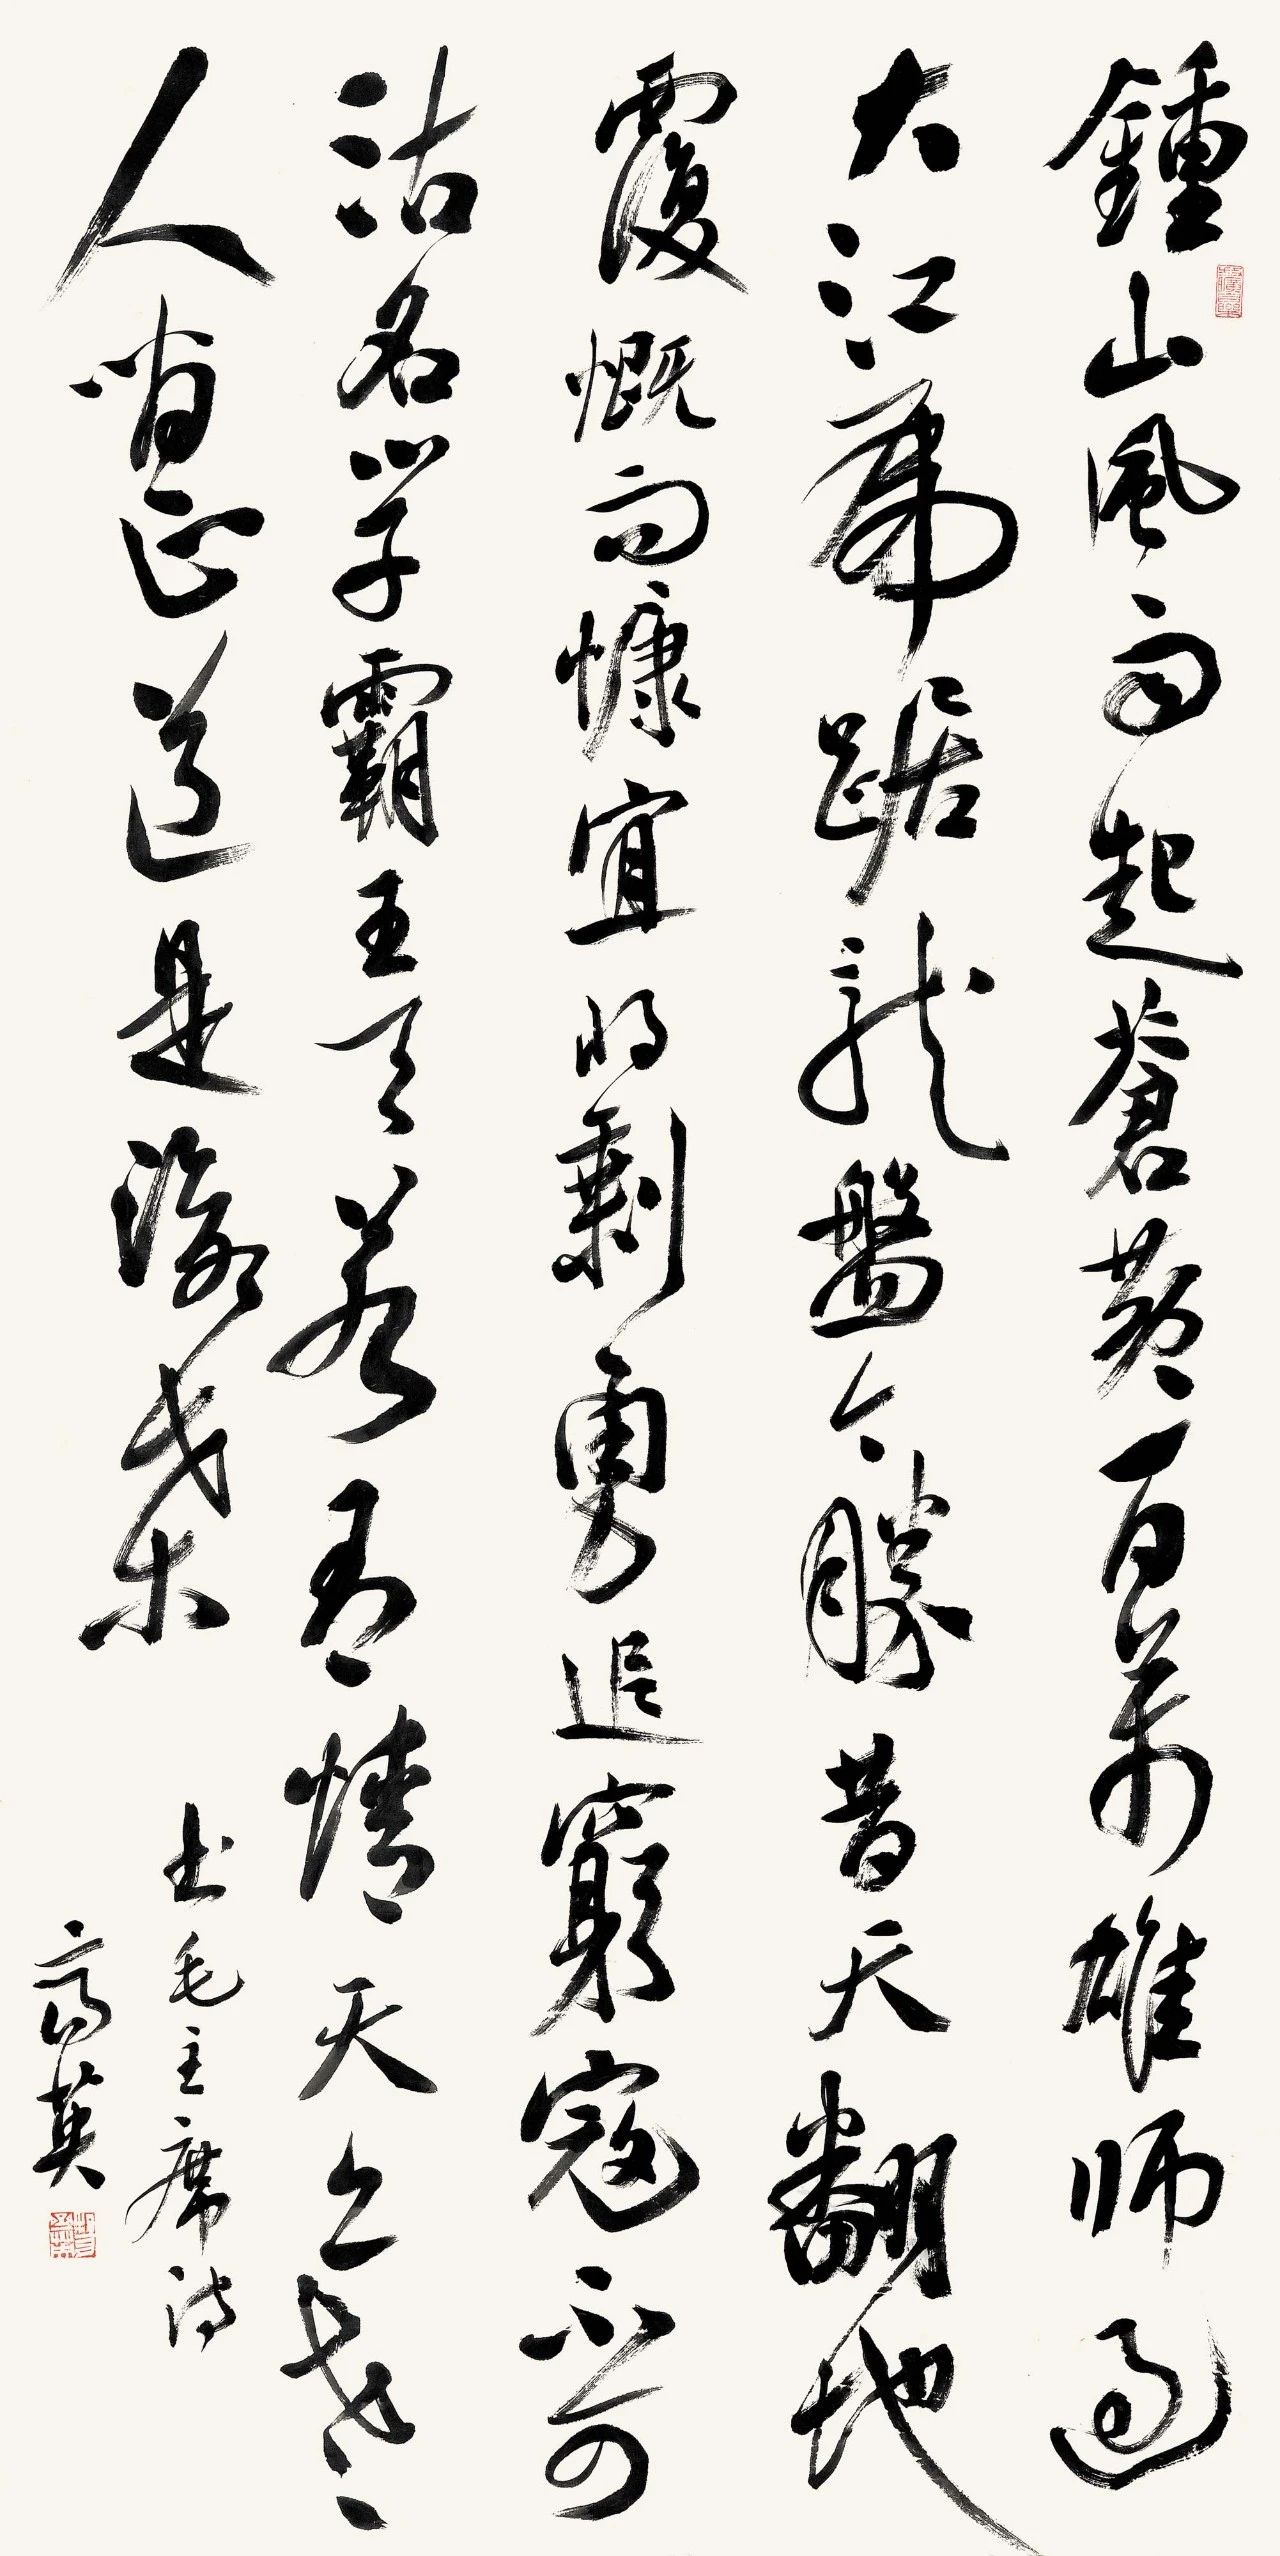 鍾山風雨起蒼黃百萬雄師過
大江虎踞龍盤今勝昔天翻地
覆慨而慷宜將剩勇追窮寇不可
沽名學霸王天若有情天亦老
人間正道是滄桑
書毛主席詩
高英